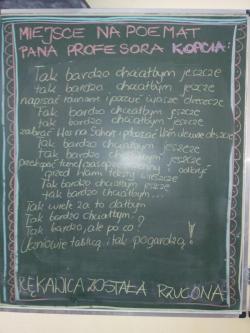 MIEJSCE NA POEMAT
PANA PROFESORA KOPCIA:
Tak bardzo chciałbym jeszcze
tak bardzo chciałbym jeszcze
napisać i poczuć dreszcze
Tak bardzo chciałbym jeszcze
tak bardzo chciałbym jeszcze
zabrać Was na Sahor i pokazać Wam
Tak bardzo chciałbym jeszcze
tak bardzo chciałbym jeszcze
i odkryć
przed Wami teksty wieszcze
Tak bardzo chciałbym jeszcze
tak bardzo chciałbym...
Tak wiele za to dałbym
Tak bardzo chciałbym?
Tak bardzo, ale po co?
Uczniowie tablicą i tak pogardzą!
RĘKAWICA ZOSTAŁA RZUCONA